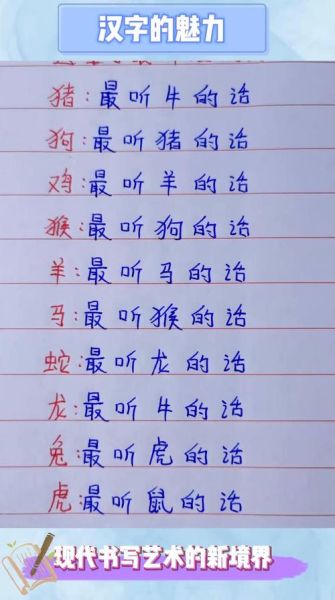 汉字的魅力
猪:最听牛的话
狗:最听猪的话
鸡:最听羊的话
猴:最听狗的话
羊:最听马的话
马:最听猴的话
蛇:最听龙的话
龙:最听牛的话
兔:最听虎的话
虎:最听鼠的话
现代书写艺术的新境界